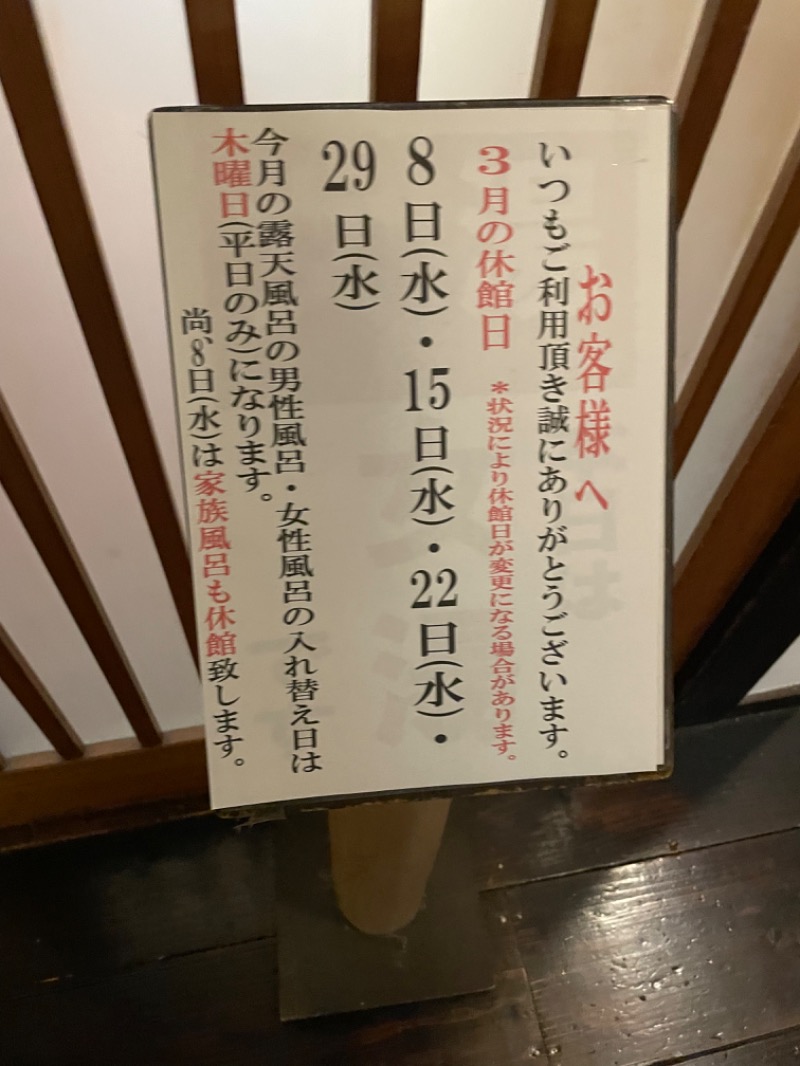 お客様へ
いつもご利用頂き誠にありがとうございます。
3月の休館日 *状況により休館日が変更になる場合があります。
8日(水)・15日(水)・22日(水)・
29日(水)
今月の露天風呂の男性風呂・女性風呂の入れ替え日は
木曜日(平日のみ)になります。
尚、8日(水)は家族風呂も休館致します。